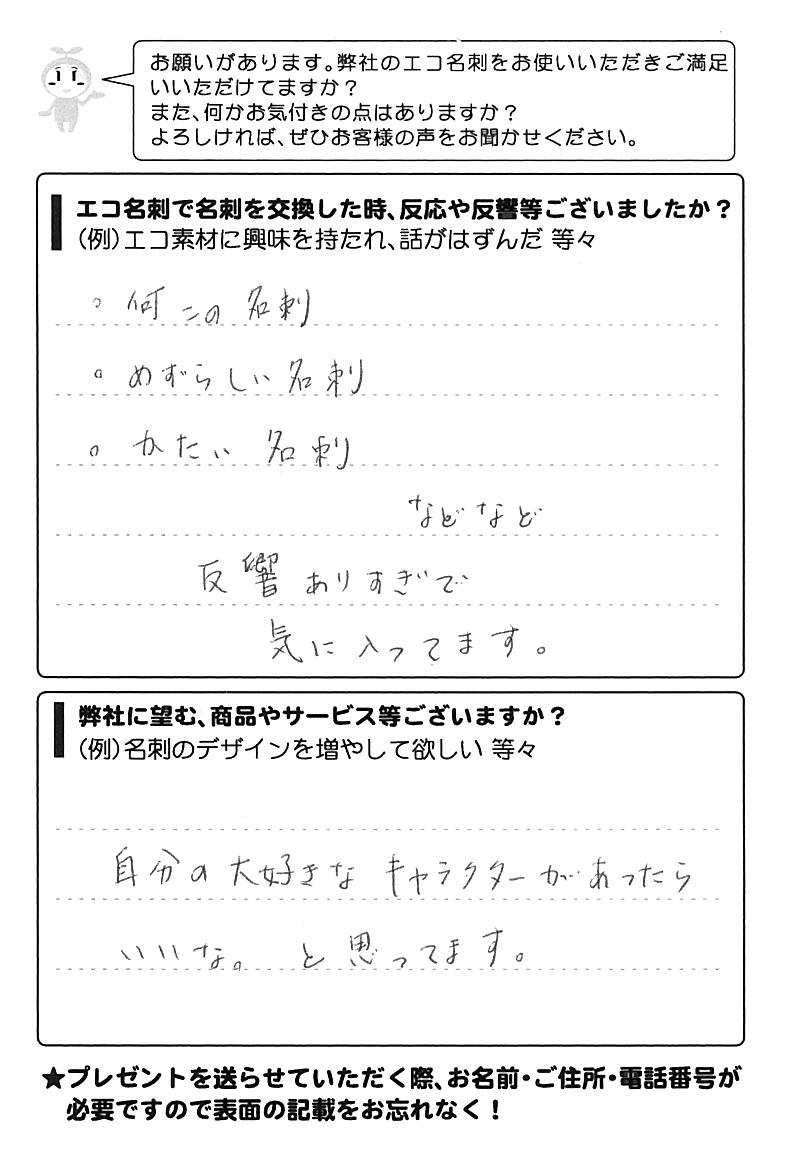 お願いがあります。弊社のエコ名刺をお使いいただきご満足
いいただけてますか？
また、何かお気付きの点はありますか？
よろしければ、ぜひお客様の声をお聞かせください。
エコ名刺で名刺を交換した時、反応や反響等ございましたか？
（例）エコ素材に興味を持たれ、話がはずんだ 等々
。何この名刺
。めずらしい名刺
。かたい名刺
などなど
反響ありすぎで
気に入ってます。
弊社に望む、商品やサービス等ございますか？
（例）名刺のデザインを増やして欲しい 等々
自分の大好きなキャラクターがあったら
いいな。と思ってます。
★プレゼントを送らせていただく際、お名前・ご住所・電話番号が
必要ですので表面の記載をお忘れなく！